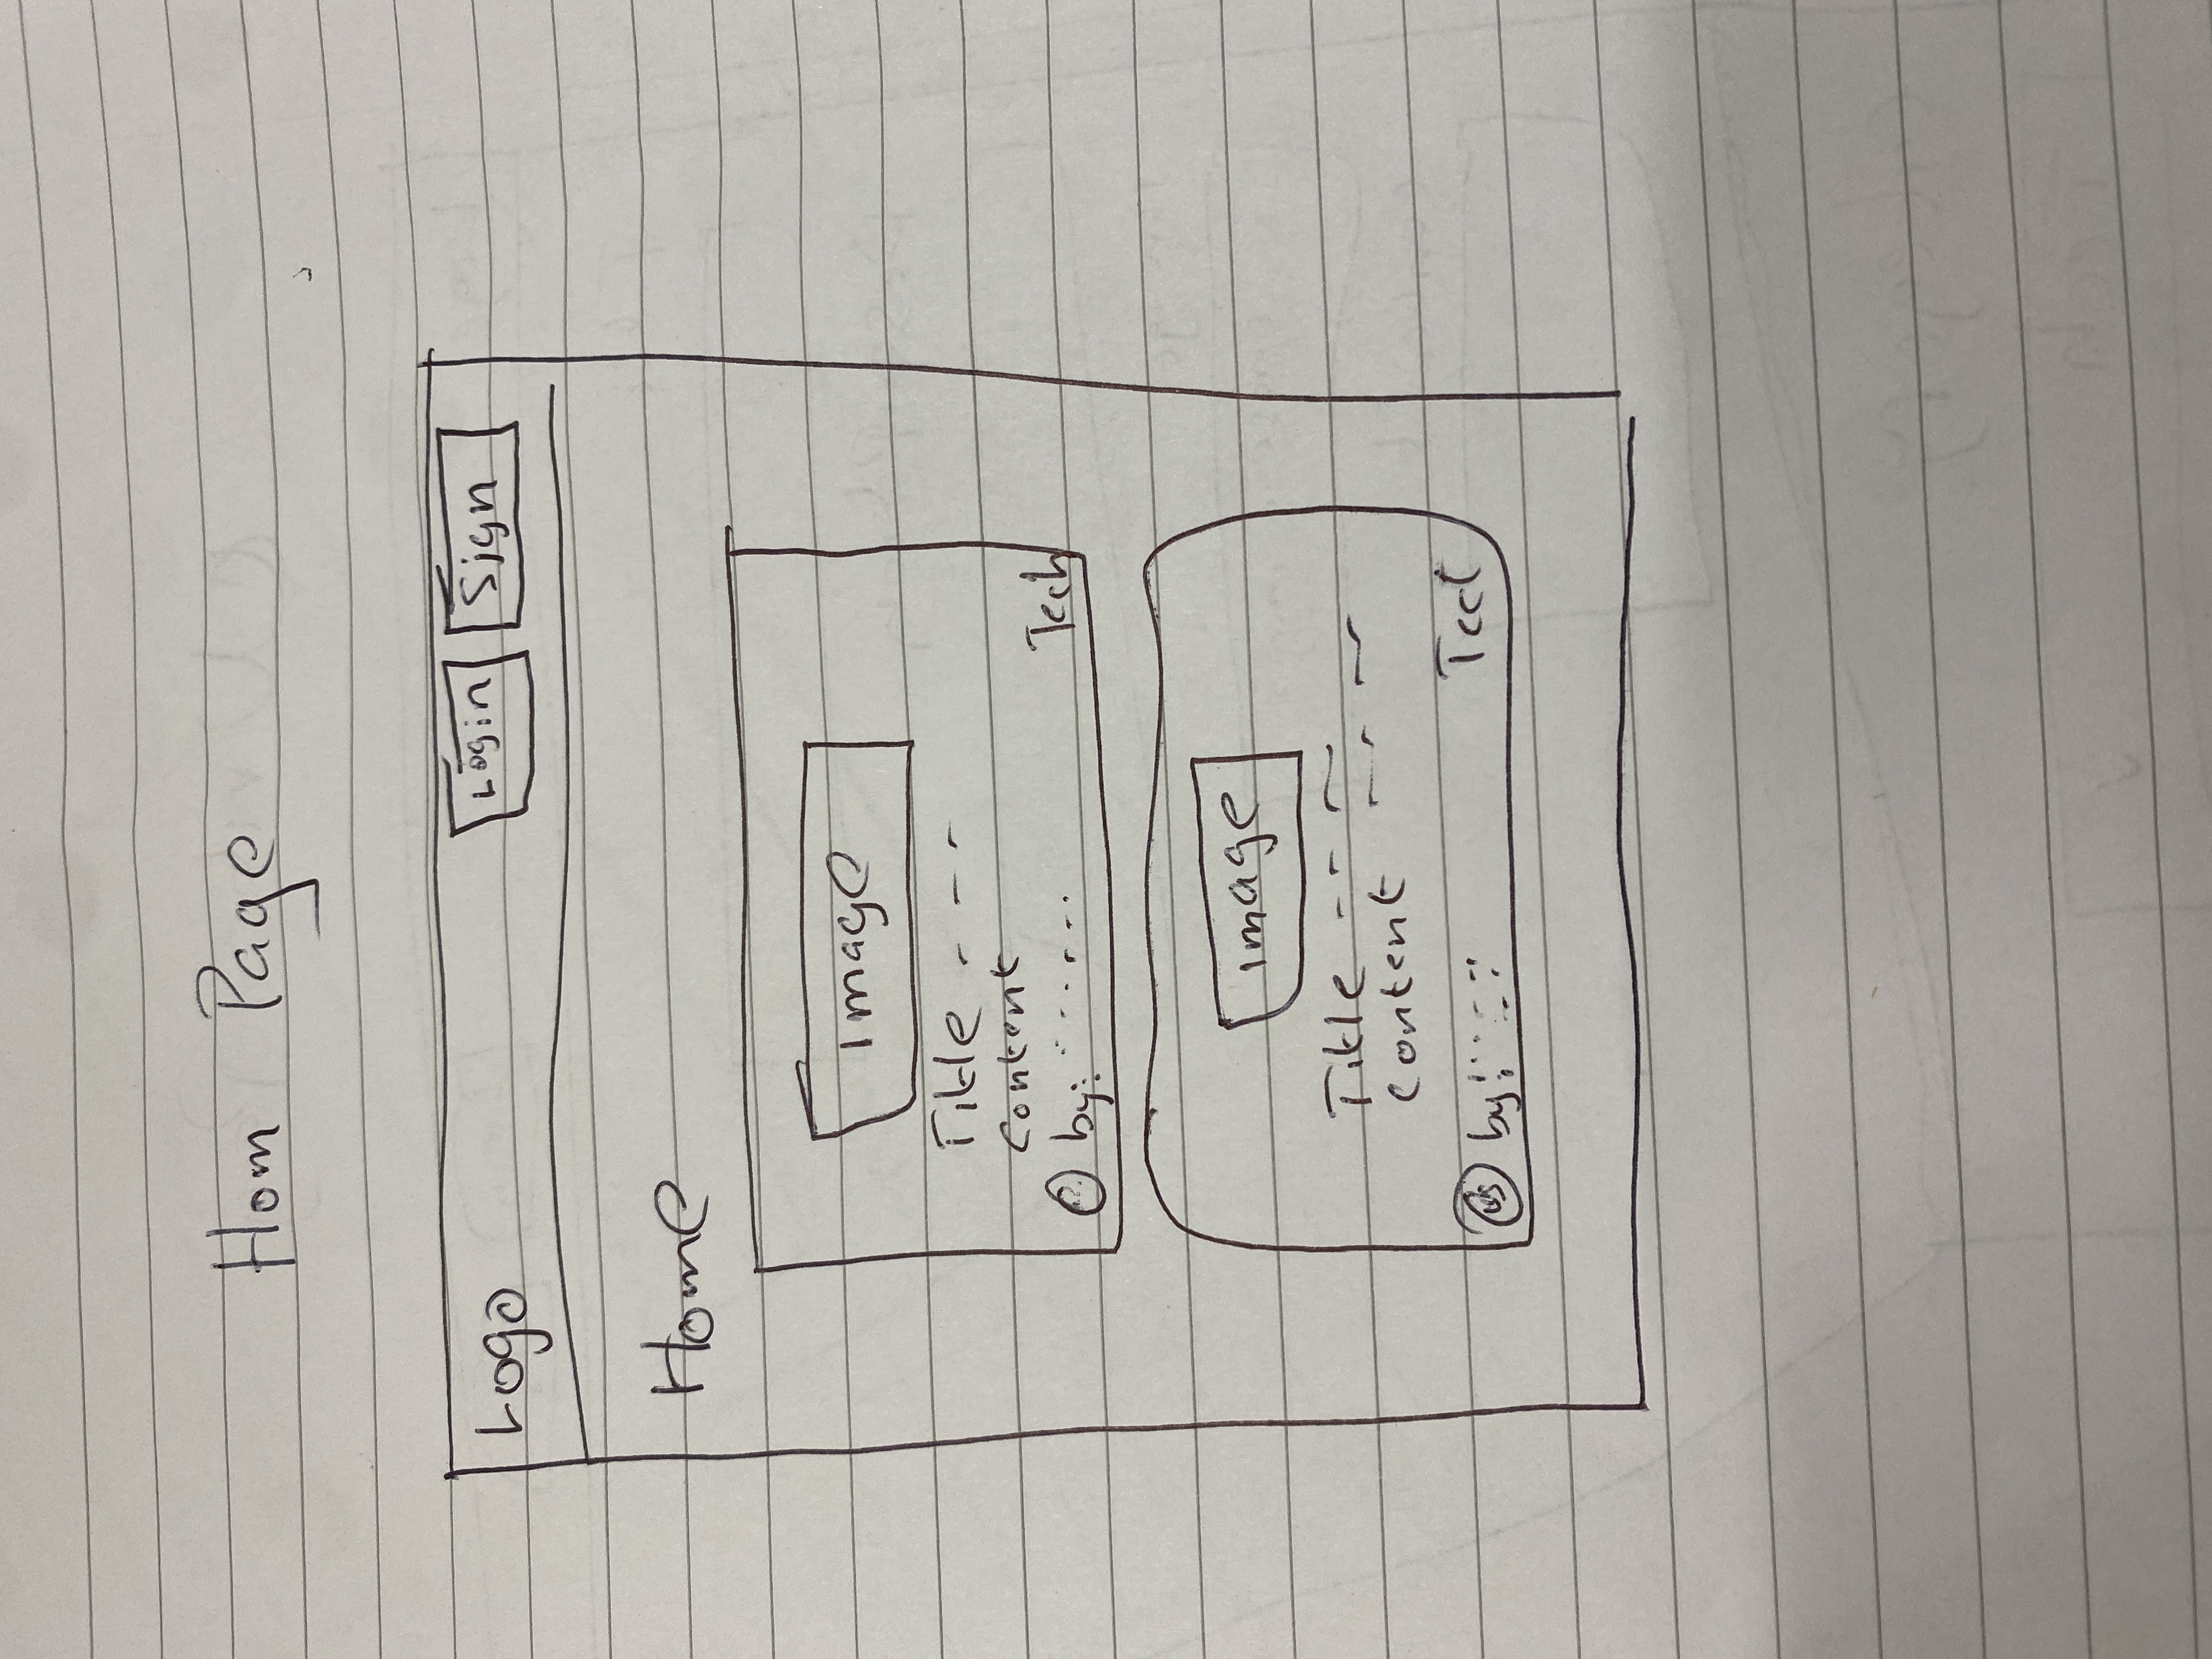 Hom Page
Logo Login Sign
Home
image
Title
Content
by: Tech
image
Title
content
by: